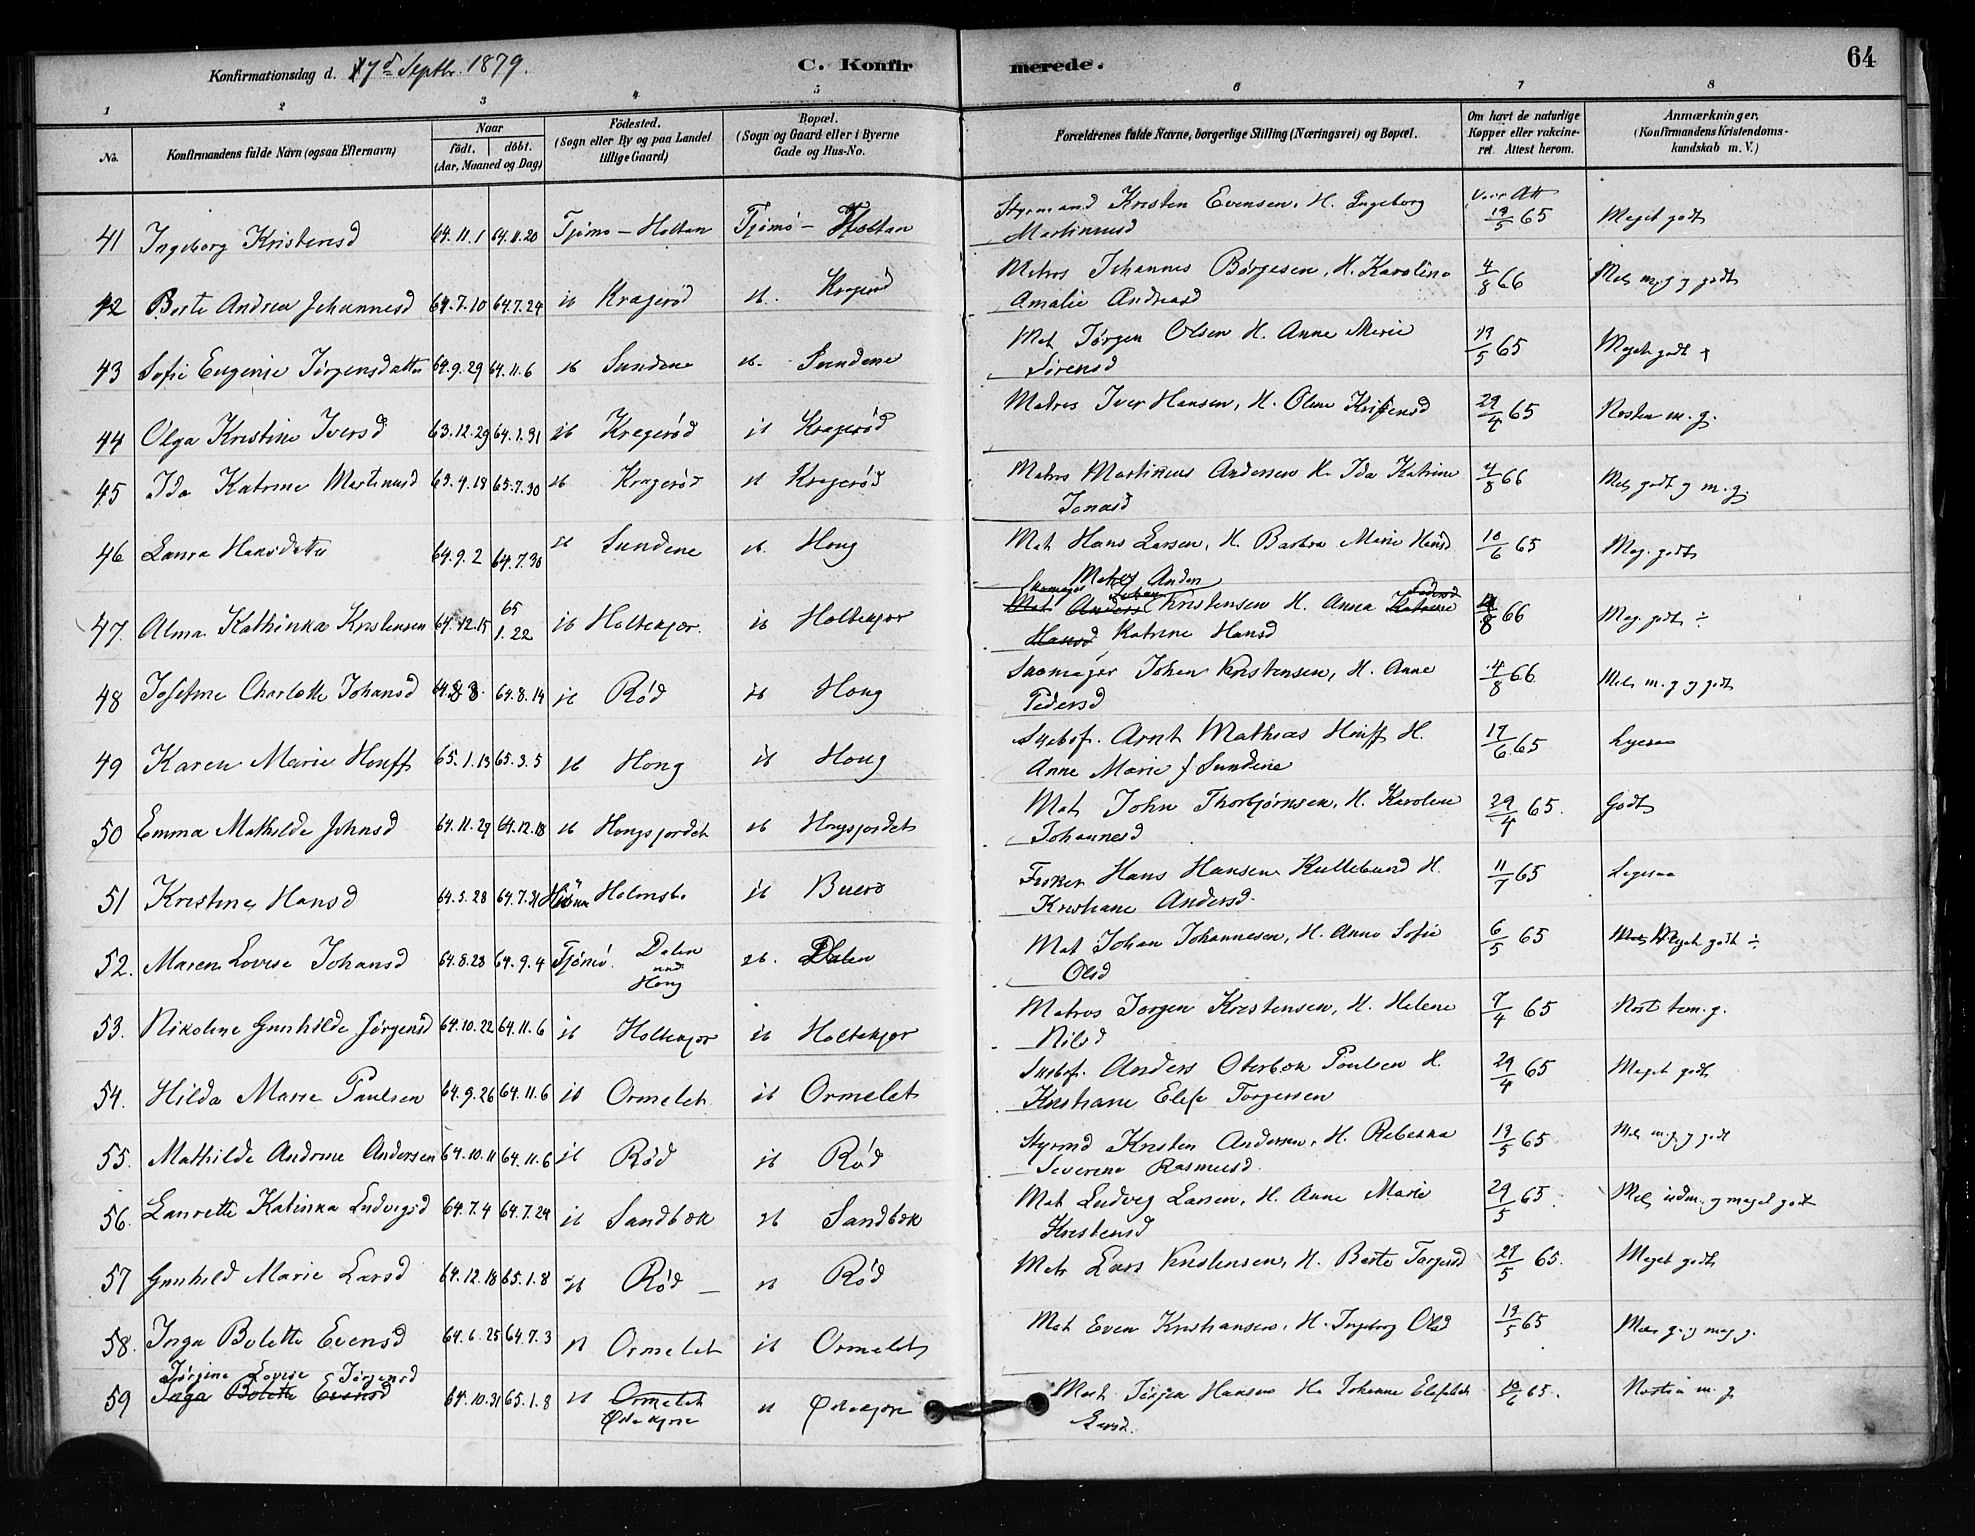 Konfirmationsdag d. 7d Septbr. 1879.
C. Konfirmerede.
64
1 2 3 4 5 6 7 8
No.
Konfirmandens fulde Navn (ogsaa Efternavn)
Naar
født. døbt.
(Aar, Maaned og Dag)
Fødested.
(Sogn eller By og paa Landet
tillige Gaard)
Bopæl.
(Sogn og Gaard eller i Byerne
Gade og Hus-No.
Forældrenes fulde Navne, borgerlige Stilling (Næringsvei) og Bopæl.
Om havt de naturlige
Kopper eller vakcine-
ret. Attest herom.
Anmærkninger.
(Konfirmandens Kristendoms-
kundskab m. V.)
41 Ingeborg Kristensd 64.11.1 64.11.20 Tjømø - Holtan Tjømø - Holtan Styrmand Kristen Evensen, H. Ingeborg 19/5 65 Meget godt
Martinusd
42 Berte Andrea Johannesd 64.7.10 64.7.24 ib Kragerød ib. Kragerød Matros Johannes Børgesen, H. Karoline 4/8 66
Amalie Andreasd
43 Sofie Eugenie Jørgensdatter 64.9.29 64.11.6 ib Sundene ib. Sundene Mat Jørgen Olsen H. Anne Marie 19/5 65 Meget godt
Sørensd
44 Olga Kristine Iversd 63.12.29 64.1.31 ib Kragerød ib Kragerød Matros Iver Hansen, H. Oline Kristensd 29/4 65 Næsten m.g.
45 Ida Katrine Martinusd ib Kragerød ib Kragerød Matros Martinius Andersen H. Ida Katrine 4/8 66 Mel godt g m.g.
Jonasd
46 Laura Hansdatter 64.9.2 64.7.30 ib Sundene ib. Houg Mat Hans Larsen, H. Barbra Marie Hansd 10/6 65 Meg. godt
Matros Anders
47 Alma Kathinka Kristensen 64.12.15 65 1.22 ib Holtekjær ib Holtekjær Skomager Johan Mat Anders Kristensen H. Anna Katrine Pedersd 66 Meg. godt ÷
Hansd Katrine Hansd
48 Josefine Charlotte Johansd 64.8.14 ib Rød ib Houg Skomager Johan Kristensen, H. Anne 4/8 66 Mel m.g g godt
Pedersd
49 Karen Marie Houff 65.1.13 65.3.5 ib Houg ib Houg Arnt Mathias Houff H. 17/6 65
Anne Marie f Sundene
50 Emma Mathilde Johnsd 64.11.29 64.12.18 ib Hougsjordet ib Hougsjordet Mat John Thorbjørnsen, H. Karoline 29/4 65. Godt
Johannesd
51 Kristine Hansd 64.5.28 64.7.31 Holmsbo ib Buerø Fisker Hans Hansen Kullebund H. 11/7 65
Kristiane Andersd.
52. Maren Lovise Johansd 64.8.28 64.9.4 Tjømø. Dalen und Houg ib. Dalen Mat Johan Johannesen, H. Anne Sofie 6/5 65 Meget godt ÷
Olsd
53. Nikoline Gunhilde Jørgensd 64.10.22 64.11.6 ib Holtekjær ib Holtekjær Matros Jørgen Kristensen, H. Helene 7/4 65
Nilsd
54. Hilda Marie Paulsen 64.9.26 64.11.6 ib Ormelet. ib Ormelet Anders Oterbæk Poulsen H. 29/4 65 Meget godt
Kristiane Elise Torgersen
55. Mathilde Andrine Andersen 64.10.11 64.11.6 ib Rød ib Rød Styrmd Kristen Andersen, H. Rebekka 19/5 65 Mel m.g. g godt
Severine Rasmusd.
56. Laurette Katinka Ludvigsd 64.7.4 64.7.24 ib Sandbæk ib Sandbæk Mat Ludvig Larsen, H. Anne Marie 29/5 65. Mel udm. g meget godt
Kristensd
57 Gunhild Marie Larsd 64.12.18 65.1.8 ib Rød ib Rød Mat Lars Kristensen, H. Berte Torgersd 29/5 65. Meget godt
58. Inga Bolette Evensd 64.6.25 64.7.3 ib Ormelet ib Ormelet Mat Even Kristiansen, H. Ingeborg Olsd 19/5 65 Mel g. g meg g.
Jørgine Lovise Jørgensd
59 Inga Bolette Evensd 64.10.31 65.1.8 ib Ormelet ib Ødekjære Mat Jørgen Hansen H. Johanne Elisabet 10/6 65. Næsten m.g
Ødekjære Larsd.